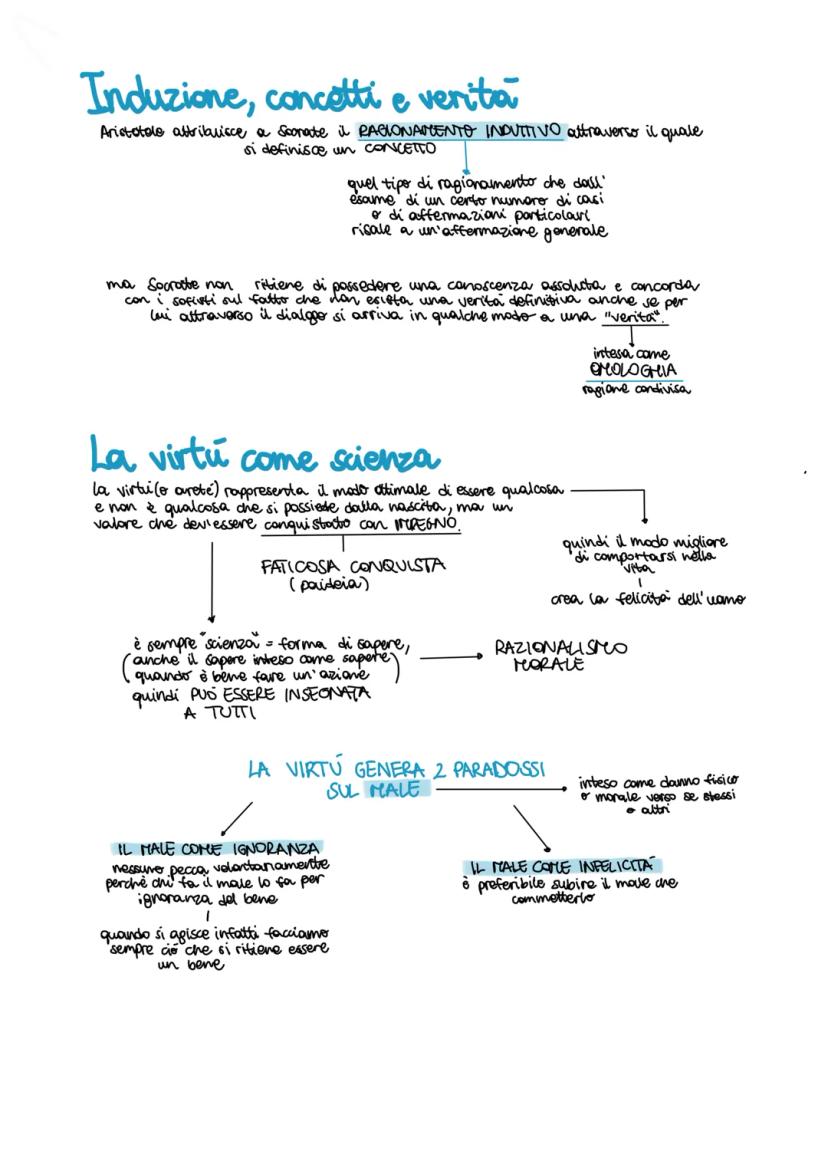 Induzione, concetti e verità
Aristotele attribuisce a Socrate il RAGIONAMENTO INDUTTIVO attraverso il quale
si definisce un CONCETTO
quel tipo di ragionamento che dall'
esame di un certo numero di casi
o di affermazioni particolari
risale a un'affermazione generale
ma Socrate non ritiene di possedere una conoscenza assoluta e concorda
con i sofisti sul fatto che non esista una verità definitiva anche se per
lui attraverso il dialogo si arriva in qualche modo a una "verità".
intesa come
OMOLOGHIA
ragione condivisa
La virtú come scienza
la virtú(o areté) rappresenta il modo ottimale di essere qualcosa
e non è qualcosa che si possiede dalla nascita, ma un
valore che dev'essere conquistato con IMPEGNO.
quindi il modo migliore
di comportarsi nella
vita
crea la felicità dell'uomo
FATICOSA CONQUISTA
(paideia)
è sempre "scienza" = forma di sapere,
(anche il sapere inteso come sapere
quando è bene fare un'azione)
quindi PUÓ ESSERE INSEGNATA
A TUTTI
RAZIONALISMO
MORALE
LA VIRTÚ GENERA 2 PARADOSSI
SUL MALE
inteso come danno fisico
o morale verso se stessi
o altri
IL MALE COME IGNORANZA
nessuno pecca volontariamente
perchè chi fa il male lo fa per
ignoranza del bene
quando si agisce infatti facciamo
sempre ció che si ritiene essere
un bene
IL MALE COME INFELICITÀ
è preferibile subire il male che
commetterlo